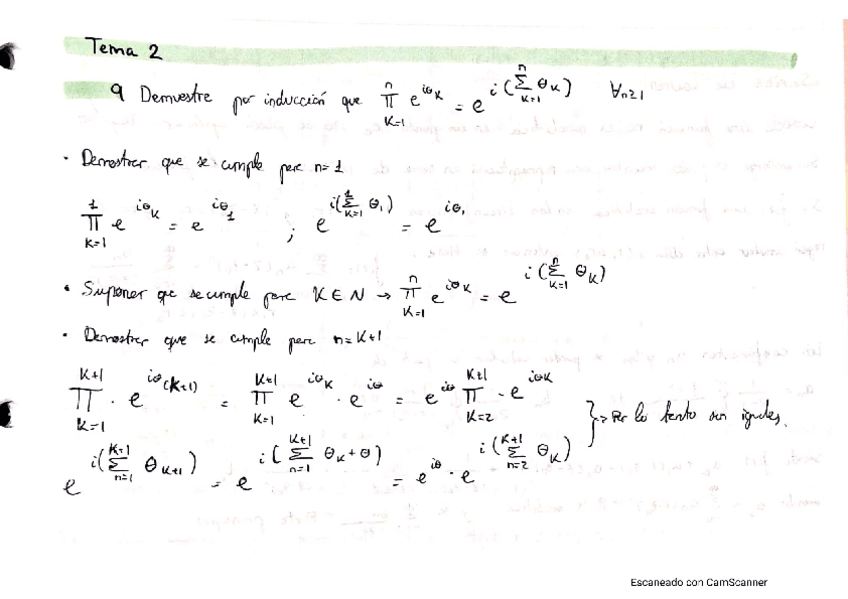 Tema 2
9 Demuestre por inducción que ∏_{K=1}^{n} e^{iθ_K} = e^{i(∑_{K=1}^{n} θ_K)} ∀n≥1
· Demostrar que se cumple para n=1
∏_{K=1}^{1} e^{iθ_K} = e^{iθ_1} ; e^{i(∑_{K=1}^{1} θ_1)} = e^{iθ_1}
· Suponer que se cumple para K∈N → ∏_{K=1}^{n} e^{iθ_K} = e^{i(∑_{K=1}^{n} θ_K)}
· Demostrar que se cumple para n=K+1
∏_{K=1}^{K+1} · e^{iθ_{(K+1)}} = ∏_{K=1}^{K+1} e^{iθ_K} · e^{iθ} = e^{iθ} ∏_{K=2}^{K+1} · e^{iθ_K}
} → Por lo tanto son iguales.
e^{i(∑_{n=1}^{K+1} θ_{K+1})} = e^{i(∑_{n=1}^{K+1} θ_K + θ)} = e^{iθ} · e^{i(∑_{n=2}^{K+1} θ_K)}
Escaneado con CamScanner